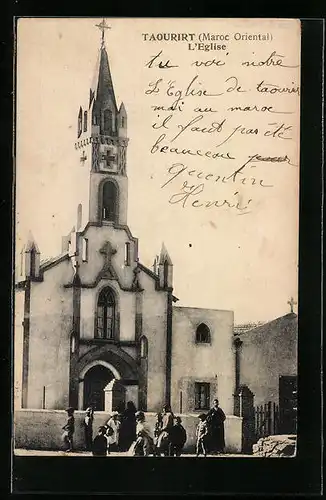 TAOURIRT (Maroc Oriental)
L'Eglise
tu voi notre
L'Eglise de taourir
mai au maroc
il faut pas été
beaucau
quentin
Henri